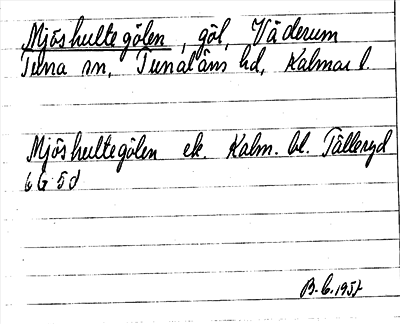 Mjöshultegölen, göl, Väderum
Tuna sn, Tunaläns hd, Kalmar l.
Mjöshultegölen ek. Kalm. bl. Tålleryd
6G 5d
B. C. 1957